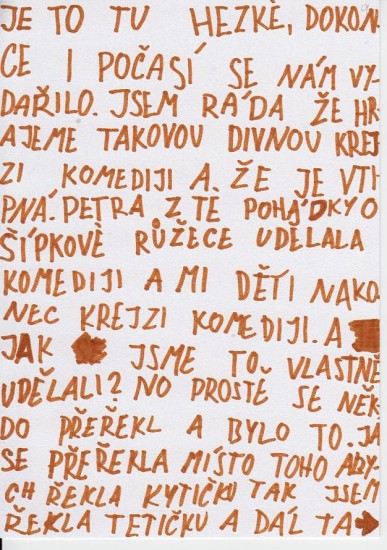 JE TO TU HEZKÈ, DOKON
CE I POČASÍ SE NÁM VY
DAŘILO. JSEM RÁDA ŽE HR
AJEME TAKOVOU DIVNOU KREJ
ZI KOMEDIJI A. ŽE JE VTI
PNÁ. PETRA Z TÉ POHÁDKY O
ŠÍPKOVÈ RŮŽECE UDĚLALA
KOMEDIJI A MI DĚTI NAKO
NEC KREJZI KOMEDIJI. A
JAK JSME TO VLASTNĚ
UDĚLALI? NO PROSTĚ SE NĚK
DO PŘEŘEKL A BYLO TO. JÁ
SE PŘEŘEKLA MÍSTO TOHO ABY
CH ŘEKLA KYTIČKU TAK JSEM
ŘEKLA TETIČKU A DÁL TA